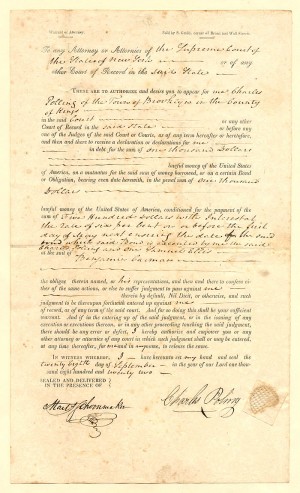 To any Attorney or Attorneys of the Supreme Court of
the State of New York or of any
other Court of Record in the said State
THESE ARE TO AUTHORISE and desire you to appear for me Charles
of the Town of Brooklyn in the County
of Kings
in the said Court or any other
Court of Record in the said State or before any
one of the Judges of the said Court or Courts, as of any term hereafter or heretofore,
and then and there to receive a declaration or declarations for me
in debt for the sum of one thousand Dollars
lawful money of the United States
of America, on a mutuatus for the said sum of money borrowed, or on a certain Bond
or Obligation, bearing even date herewith, in the penal sum of one thousand
Dollars
lawful money of the United States of America, conditioned for the payment of the
sum of Five Hundred Dollars with Interest at
the rate of six per cent on or before the first
day of May next ensuing the date of the said
bond which said Bond is executed by me the said
Charles and one Samuel
at the suit of
Benjamin
the obligee therein named, or representatives, and then and there to confess either
of the same actions, or else to suffer judgment to pass against
therein by default, Nil Dicit, or otherwise, and such
judgment to be thereupon forthwith entered up against me
of record, as of any term of the said court. And for so doing this shall be your sufficient
warrant. And if in the entering up of the said judgment, or in the issuing of any
execution or executions thereon, or in any other proceeding touching the said judgment,
there should be any error or defect, I hereby authorise and empower you or any
other attorney or attorneys of any court in which such judgment shall or may be entered,
at any time thereafter, for me and in my name, to release the same.
IN WITNESS WHEREOF, I have hereunto set my hand and seal the
twenty eighth day of September in the year of our Lord one thou-
sand eight hundred and twenty two
SEALED AND DELIVERED
IN THE PRESENCE OF
Charles